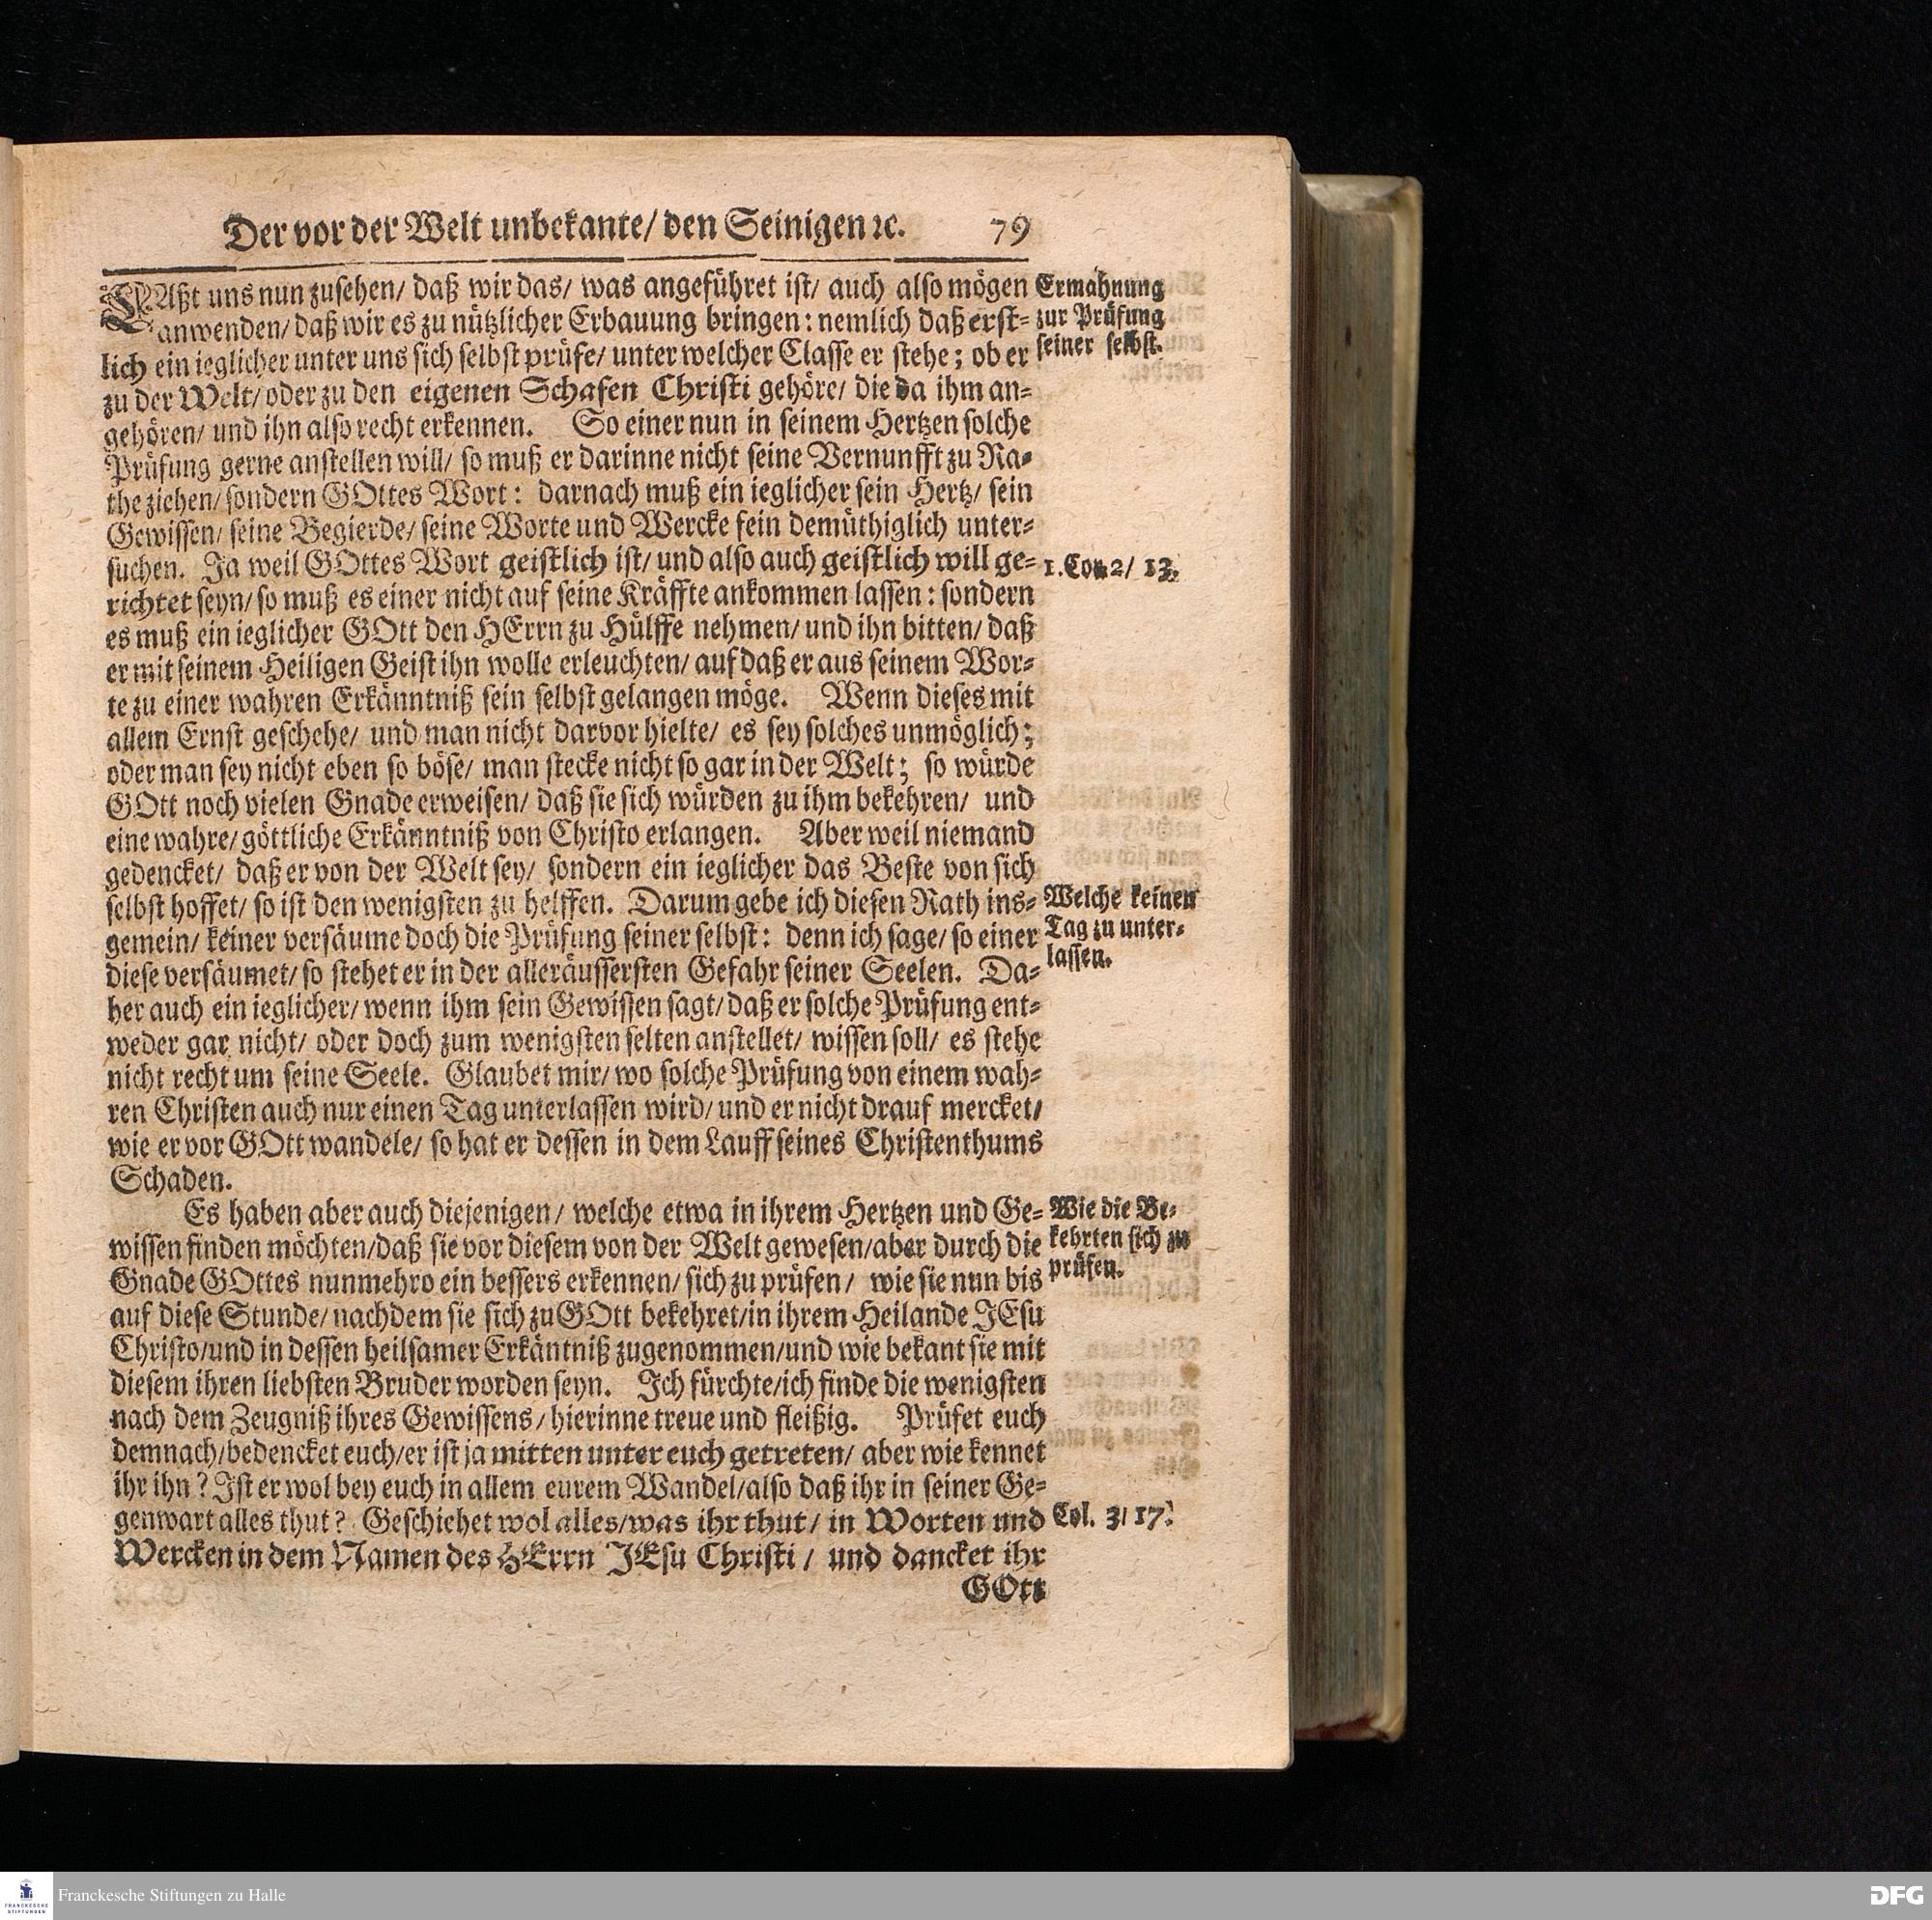 Der vor der Welt unbekante/ den Seinigen ꝛc. 79
LAßt uns nun zusehen/ daß wir das/ was angeführet ist/ auch also mögen
anwenden/ daß wir es zu nützlicher Erbauung bringen: nemlich daß erst-
lich ein ieglicher unter uns sich selbst prüfe/ unter welcher Classe er stehe; ob er
zu der Welt/ oder zu den eigenen Schafen Christi gehöre/ die da ihm an-
gehören/ und ihn also recht erkennen. So einer nun in seinem Hertzen solche
Prüfung gerne anstellen will/ so muß er darinne nicht seine Vernunfft zu Ra-
the ziehen/ sondern GOttes Wort: darnach muß ein ieglicher sein Hertz/ sein
Gewissen/ seine Begierde/ seine Worte und Wercke fein demüthiglich unter-
suchen. Ja weil GOttes Wort geistlich ist/ und also auch geistlich will ge-
richtet seyn/ so muß es einer nicht auf seine Kräffte ankommen lassen: sondern
es muß ein ieglicher GOtt den HErrn zu Hülffe nehmen/ und ihn bitten/ daß
er mit seinem Heiligen Geist ihn wolle erleuchten/ auf daß er aus seinem Wor-
te zu einer wahren Erkänntniß sein selbst gelangen möge. Wenn dieses mit
allem Ernst geschehe/ und man nicht darvor hielte/ es sey solches unmöglich;
oder man sey nicht eben so böse/ man stecke nicht so gar in der Welt; so würde
GOtt noch vielen Gnade erweisen/ daß sie sich würden zu ihm bekehren/ und
eine wahre/ göttliche Erkänntniß von Christo erlangen. Aber weil niemand
gedencket/ daß er von der Welt sey/ sondern ein ieglicher das Beste von sich
selbst hoffet/ so ist den wenigsten zu helffen. Darum gebe ich diesen Rath ins-
gemein/ keiner versäume doch die Prüfung seiner selbst: denn ich sage/ so einer
diese versäumet/ so stehet er in der alleräussersten Gefahr seiner Seelen. Da-
her auch ein ieglicher/ wenn ihm sein Gewissen sagt/ daß er solche Prüfung ent-
weder gar nicht/ oder doch zum wenigsten selten anstellet/ wissen soll/ es stehe
nicht recht um seine Seele. Glaubet mir/ wo solche Prüfung von einem wah-
ren Christen auch nur einen Tag unterlassen wird/ und er nicht drauf mercket/
wie er vor GOtt wandele/ so hat er dessen in dem Lauff seines Christenthums
Schaden.
Es haben aber auch diejenigen/ welche etwa in ihrem Hertzen und Ge-
wissen finden möchten/ daß sie vor diesem von der Welt gewesen/ aber durch die
Gnade GOttes nunmehro ein bessers erkennen/ sich zu prüfen/ wie sie nun bis
auf diese Stunde/ nachdem sie sich zu GOtt bekehret/ in ihrem Heilande JEsu
Christo/ und in dessen heilsamer Erkäntniß zugenommen/ und wie bekant sie mit
diesem ihren liebsten Bruder worden seyn. Ich fürchte/ ich finde die wenigsten
nach dem Zeugniß ihres Gewissens/ hierinne treue und fleißig. Prüfet euch
demnach/ bedencket euch/ er ist ja mitten unter euch getreten/ aber wie kennet
ihr ihn? Ist er wol bey euch in allem eurem Wandel/ also daß ihr in seiner Ge-
genwart alles thut? Geschiehet wol alles/ was ihr thut/ in Worten und
Wercken in dem Namen des HErrn JEsu Christi/ und dancket ihr
GOtt
Ermahnung
zur Prüfung
seiner selbst.
1. Cor. 2/ 13.
Welche keinen
Tag zu unter-
lassen.
Wie die Be-
kehrten sich zu
prüfen.
Col. 3/ 17.
FRANCKESCHE
STIFTUNGEN
Franckesche Stiftungen zu Halle
DFG